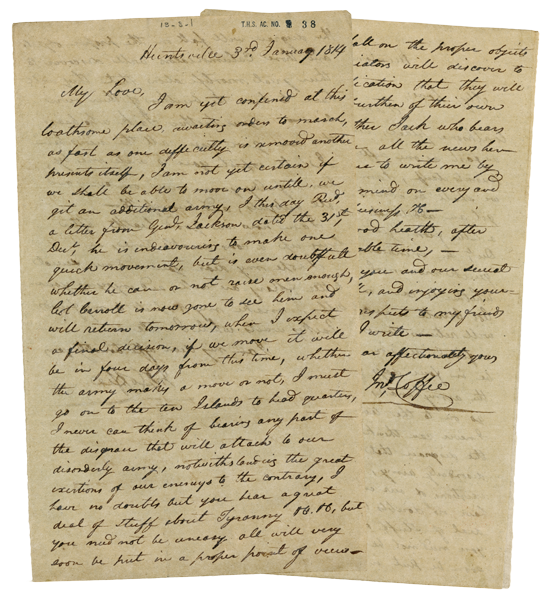 13-2-1
T.H.S. AC. NO. 38
Huntsville 3rd January 1814
My Love,
I am yet confined at this
loathsome place, awaiting orders to march,
as fast as one difficulty is removed another
presents itself, I am not yet certain if
we shall be able to move on untill we
git an additional army, I this day Recd.
a letter from Genl. Jackson dated the 31st
Decr. he is endeavouring to make one
quick movement, but is even doubtfull
whether he can or not raise men enough,
Col Carroll is now gone to see him and
will return tomorrow, when I expect
a final decision, if we move it will
be in four days from this time, whether
the army makes a move or not, I must
go on to the ten Islands to head quarters,
I never can think of bearing any part of
the disgrace that will attach to our
disorderly army, notwithstanding the great
exertions of our enemys to the contrary, I
have no doubts but you hear a great
deal of stuff about Tyranny &c. &c, but
you need not be uneasy all will very
soon be put in a proper point of view—
all on the proper objects
iators will discover to
ication that they will
urthen of their own
ther Jack who bears
all the news hm
e to write me by
mind on every and
&c—
ood health, after
ble time, —
you and our sweet
, and enjoying your=
spects to my friends
I write —
affectionately yours
Jno. Coffee